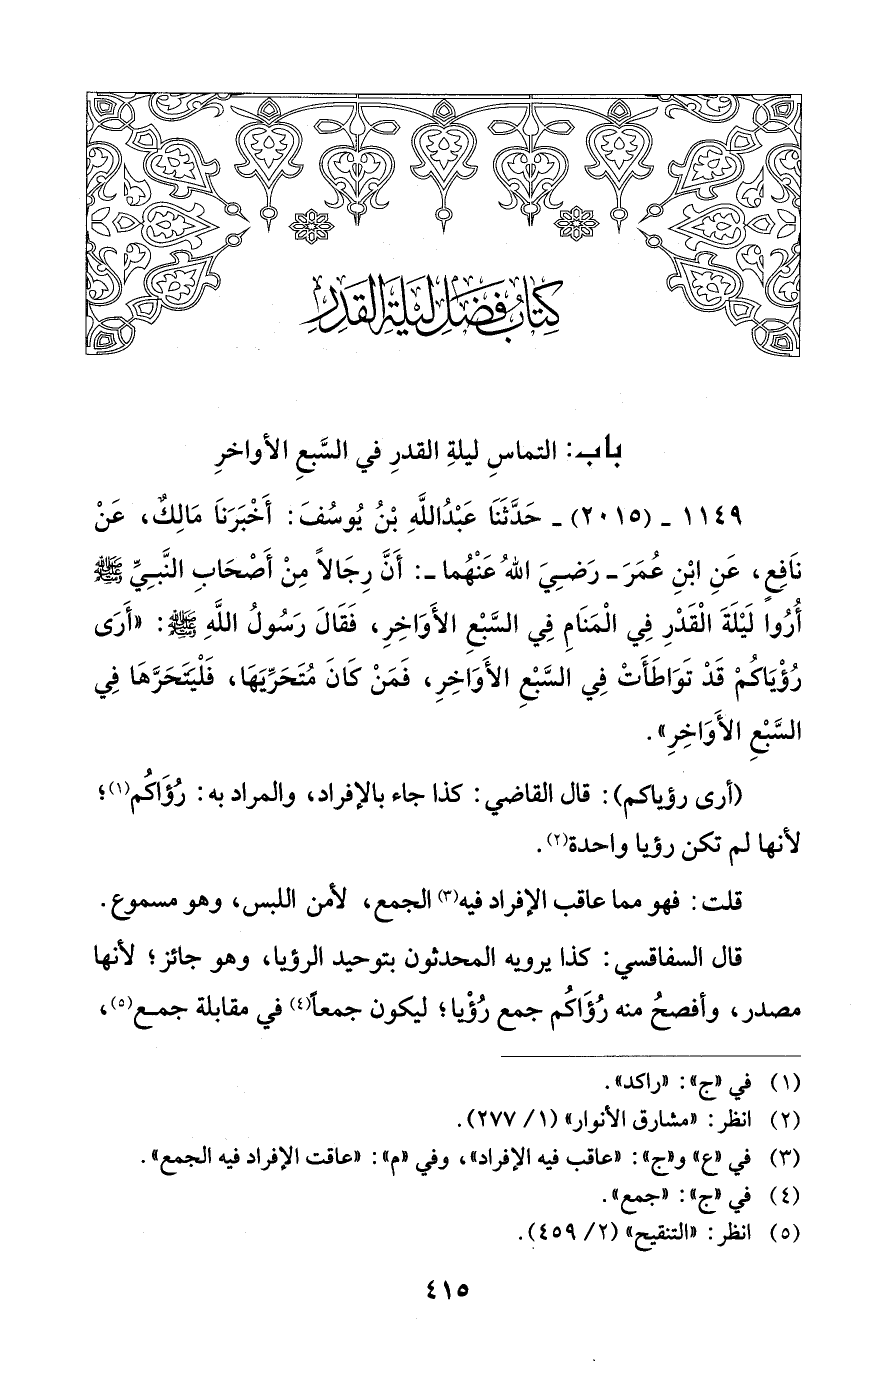 كِتَابُ فَضْلِ لَيْلَةِ الْقَدْرِ
باب: التماسِ ليلةِ القدرِ في السَّبعِ الأواخرِ
١١٤٩ - (٢٠١٥) - حَدَّثَنَا عَبْدُاللَّهِ بْنُ يُوسُفَ: أَخْبَرَنَا مَالِكٌ، عَنْ
نَافِعٍ، عَنِ ابْنِ عُمَرَ - رَضِيَ اللهُ عَنْهُما -: أَنَّ رِجَالاً مِنْ أَصْحَابِ النَّبِيِّ ﷺ
أُرُوا لَيْلَةَ الْقَدْرِ فِي الْمَنَامِ فِي السَّبْعِ الأَوَاخِرِ، فَقَالَ رَسُولُ اللَّهِ ﷺ: «أَرَى
رُؤْيَاكُمْ قَدْ تَوَاطَأَتْ فِي السَّبْعِ الأَوَاخِرِ، فَمَنْ كَانَ مُتَحَرِّيَهَا، فَلْيَتَحَرَّهَا فِي
السَّبْعِ الأَوَاخِرِ».
(أرى رؤياكم): قال القاضي: كذا جاء بالإفراد، والمراد به: رُؤَاكُم(١)؛
لأنها لم تكن رؤيا واحدة(٢).
قلت: فهو مما عاقب الإفراد فيه(٣) الجمع، لأمن اللبس، وهو مسموع.
قال السفاقسي: كذا يرويه المحدثون بتوحيد الرؤيا، وهو جائز؛ لأنها
مصدر، وأفصحُ منه رُؤَاكُم جمع رُؤْيا؛ ليكون جمعاً(٤) في مقابلة جمع(٥)،
(١) في «ج»: «راكد».
(٢) انظر: «مشارق الأنوار» (١/ ٢٧٧).
(٣) في «ع» و«ج»: «عاقب فيه الإفراد»، وفي «م»: «عاقت الإفراد فيه الجمع».
(٤) في «ج»: «جمع».
(٥) انظر: «التنقيح» (٢/ ٤٥٩).
٤١٥